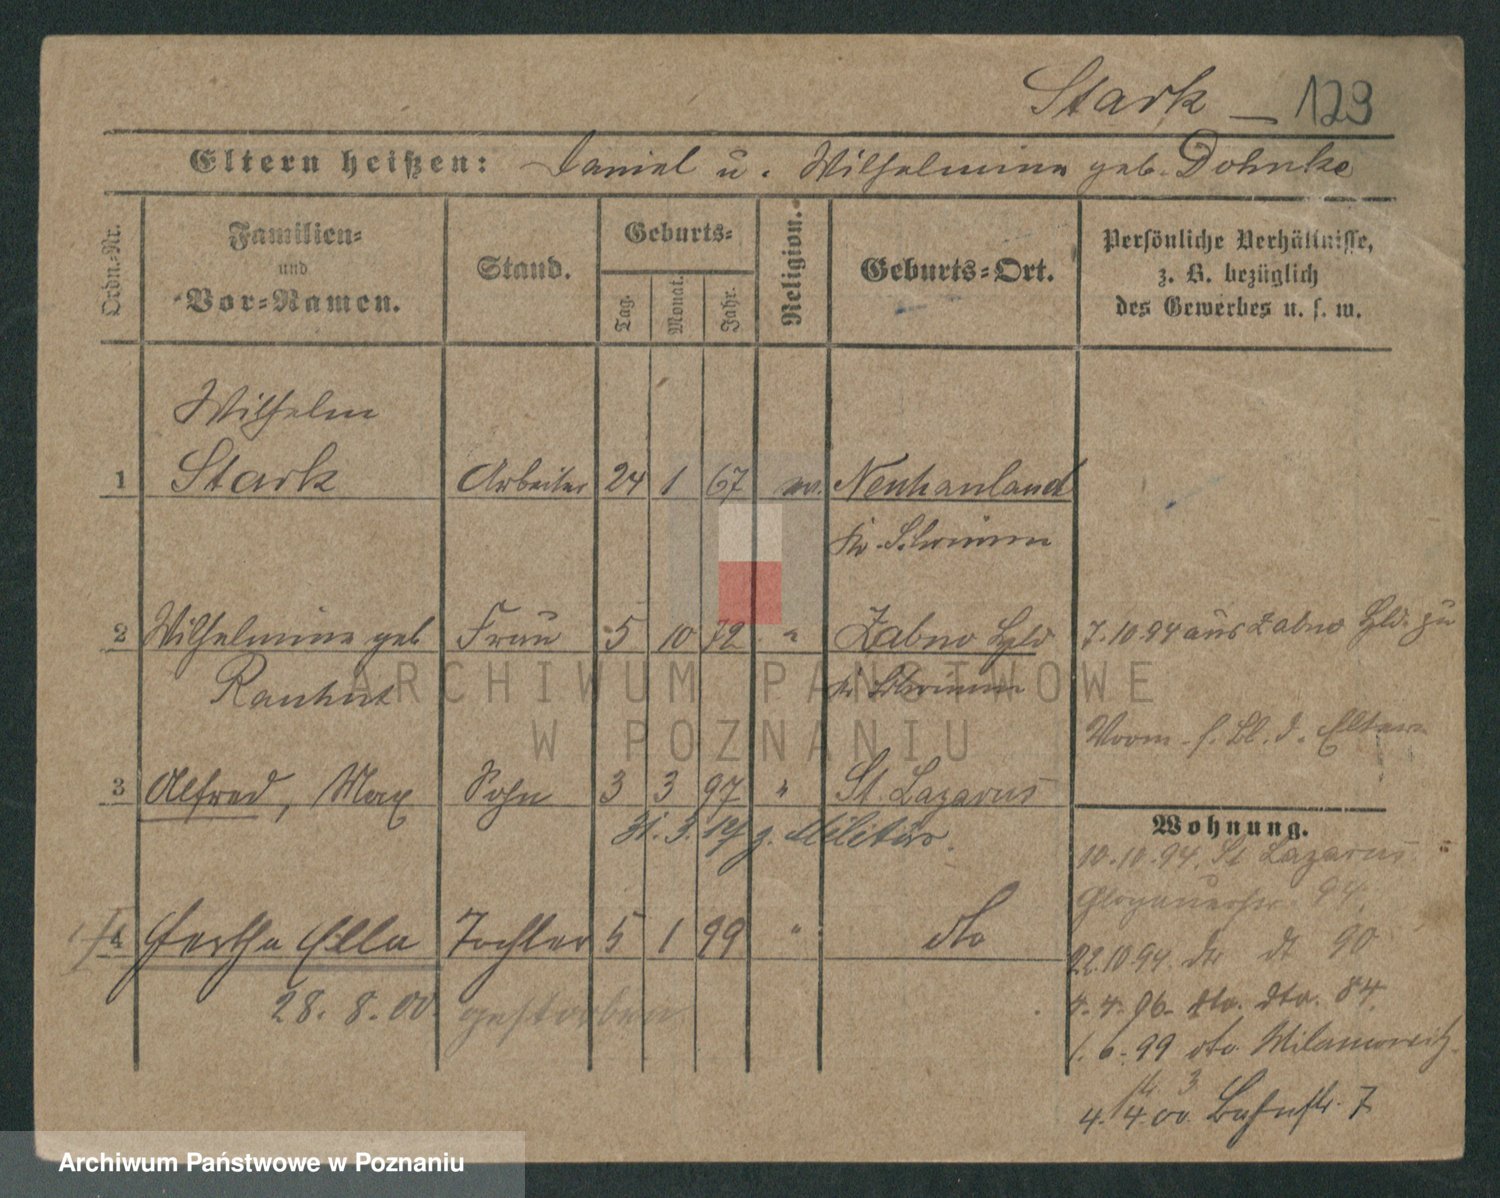 Stark — 129
Eltern heißen: Daniel u. Wilhelmine geb. Dohnke
Ordn.-Nr.
Familien-
und
Vor-Namen.
Stand.
Geburts-
Tag.
Monat.
Jahr.
Religion.
Geburts-Ort.
Persönliche Verhältnisse,
z. B. bezüglich
des Gewerbes u. s. w.
Wilhelm
1 Stark Arbeiter 24 1 67 ev. Neuhauland
Kr. Schrimm
2 Wilhelmine geb Frau 5 10 72 " Zabno Hld 7.10.94 aus Zabno Hld. zu
Rauhut Kr. Schrimm
ARCHIWUM PAŃSTWOWE
W POZNANIU
Vorm. s. Bl. d. Eltern
3 Alfred, Max Sohn 3 3 97 " St. Lazarus
31. 3. 19 z. Militär.
Wohnung.
10.10.94. St Lazarus
Glogauerstr. 94.
4 Hertha Ella Tochter 5 1 99 " dto
22.10.94. do dt 90
28. 8. 00. gestorben
4.4.96. dto. dto. 84.
1.6.99 dto
str. 3
4.4.00. Bahnstr. 7
Archiwum Państwowe w Poznaniu